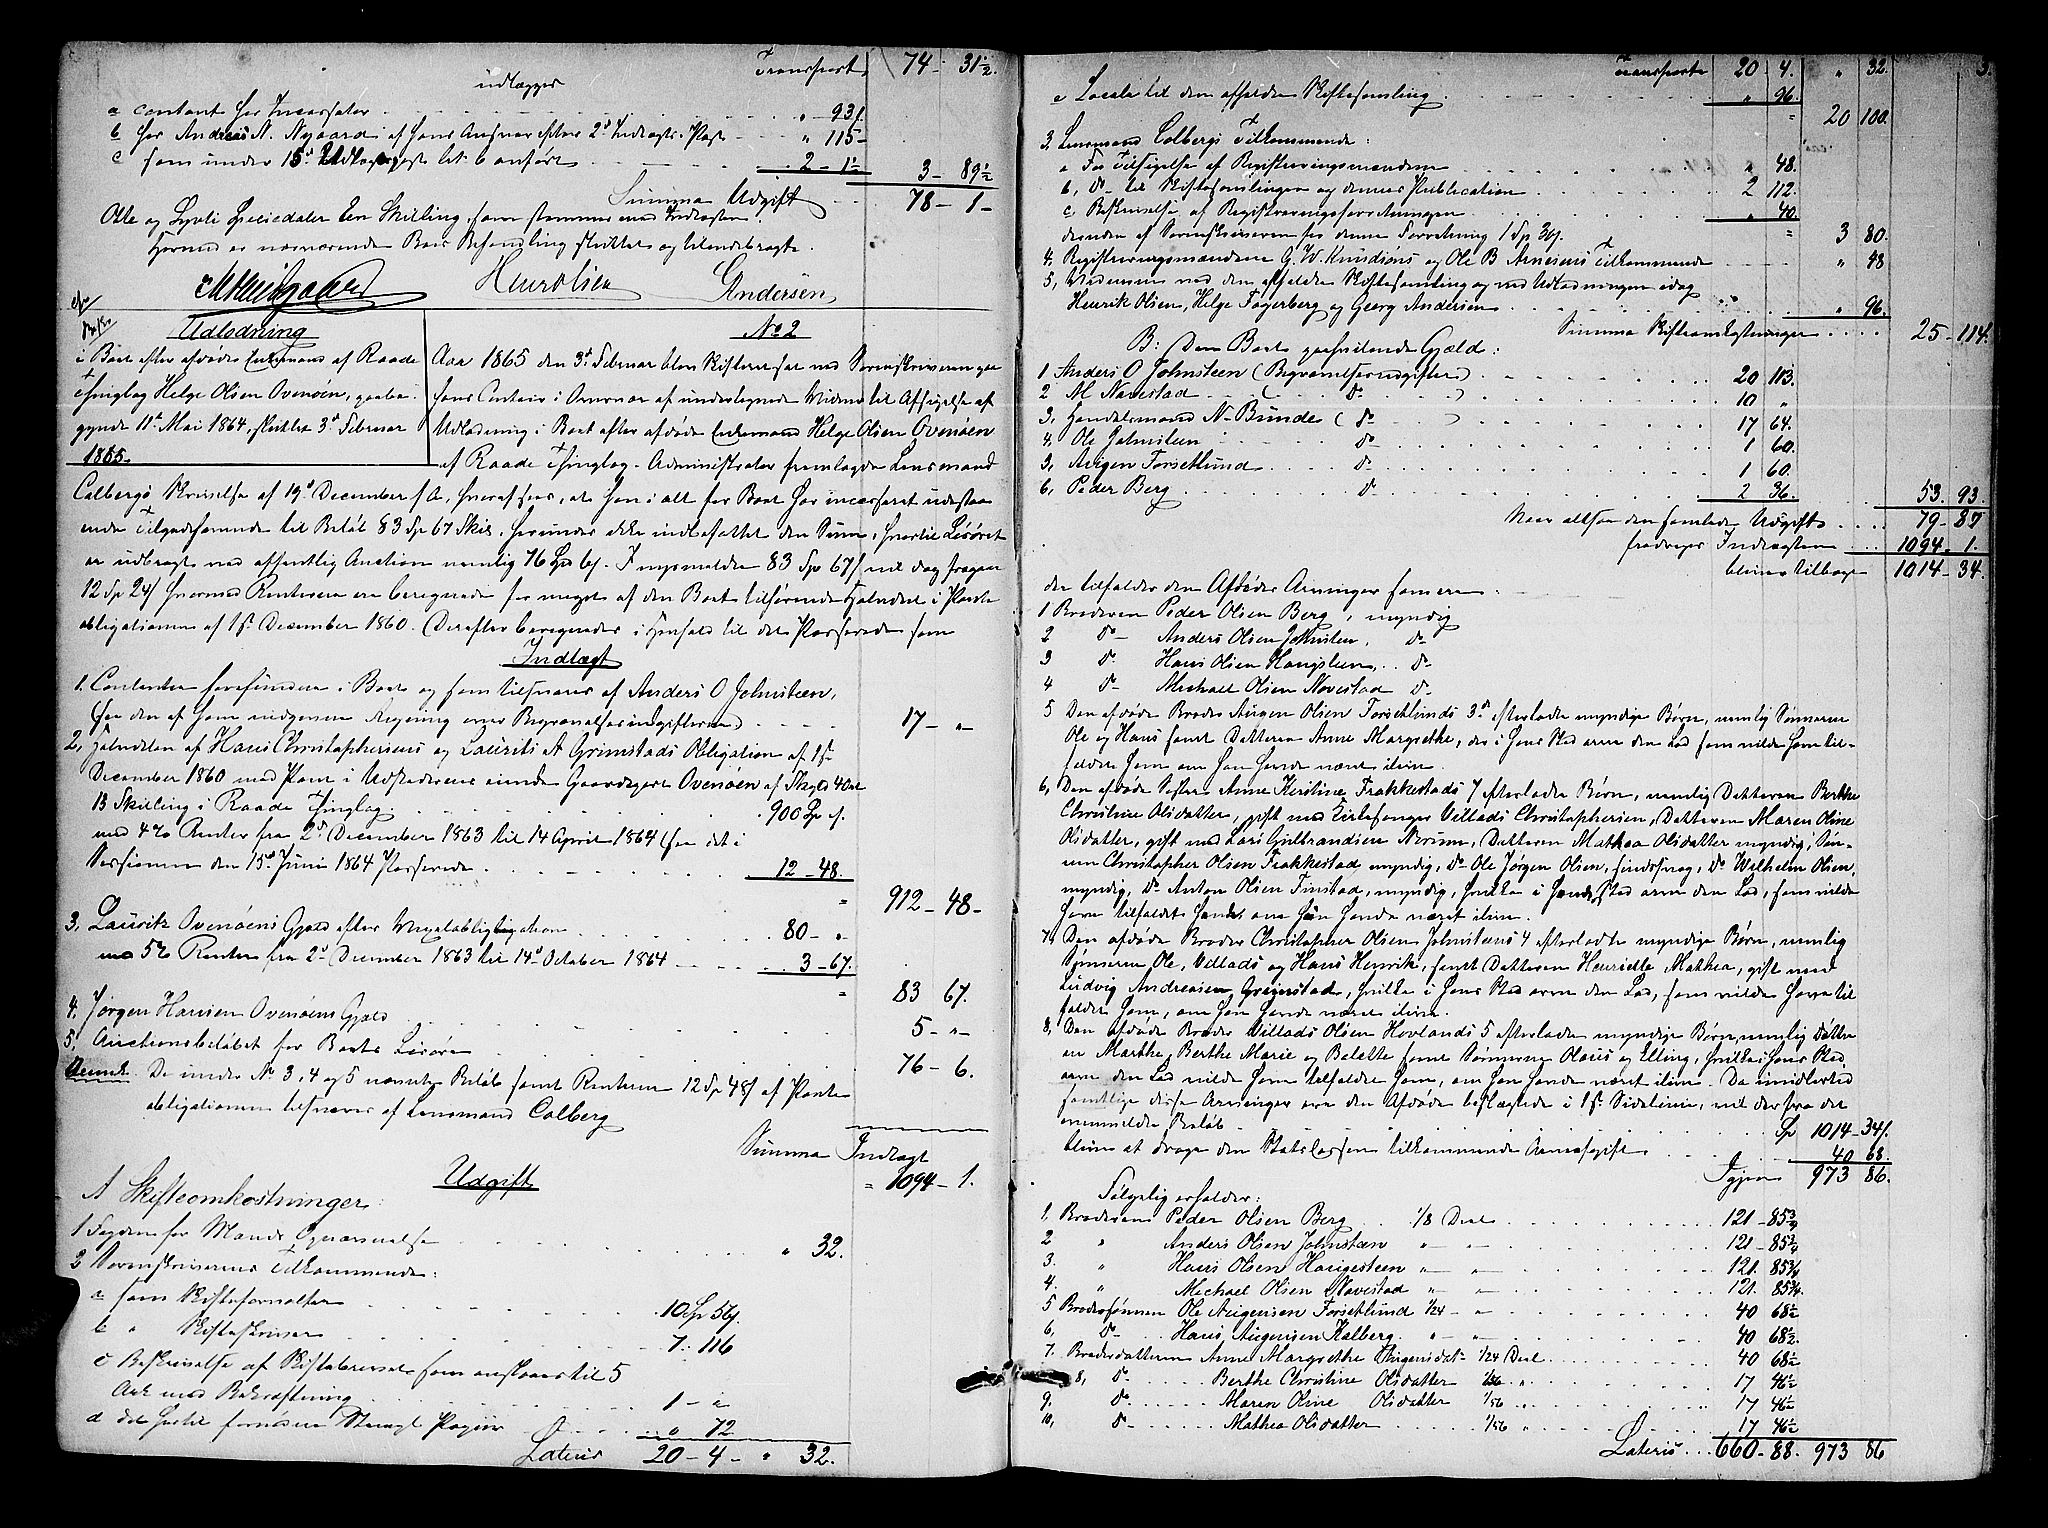 udlægges Transport 74 - 31½
a contant for Incassator 93f
b hos Andreas N. Nygaard af Hans Ansvar efter 2d Indtægts Post " 115 -
c som under 15d Udlægspost lit. b anført 2 - 1½ 3 - 89½
Summa Udgift 78 - 1 -
Otte og Syvti Speciedaler Een Skilling, som stemmer med Indtægten.
Hermed er nærværende Boes Behandling sluttet og tilendebragt.
Henr Olsen Andersen
Udlodning
i Boet efter afdøde Enkemand af Raade
Thinglag Helge Olsen Ovenøen, paabe-
gyndt 11te Mai 1864, sluttet 3d Februar
1865.
No 2
Aar 1865 den 3d Februar blev Skifteret sat ved Sorenskriveren paa
hans Contoir i Overvær af undertegnede Vidner til Afsigelse af
Udlodning i Boet efter afdøde Enkemand Helge Olsen Ovenøen
af Raade Thinglag. Administrator fremlagde Lensmand
Colbergs Skrivelse af 19d December f A, hvoraf sees, at han i alt for Boet har incasseret udestaa-
ende Tilgodehavende til Beløb 83 Sp 67 Skil, herunder ikke indbefattet den Sum, hvortil Løsøret
er udbragt ved offentlig Auction nemlig 76 Spd 6f. I anmeldte 83 Sp 67f vil dog fragaae
12 Sp 24f hvormed Renterne ere beregnede for meget af den Boet tilhørende Halvdel i Pante
obligationen af 1ste December 1860. Derefter beregnedes i Henhold til det Passerede som
Indtægt
1. Contanter forefundne i Boet og som tilsvares af Anders O Johnsteen,
(see den af ham indgivne Regning over Begravelsesudgifterne) 17 - "
2, Halvdelen af Hans Christophersens og Laurits A Grimstads Obligation af 1ste
December 1860 med Pant i Udstederens eiende Gaardpart Ovenøen af Skyld 4 Ort
13 Skilling i Raade Thinglag 900 Sp f.
med 4% Renter fra 2d December 1863 til 14 April 1864 (see det i
Sessionen den 15d Juni 1864 Passerede 12 - 48.
" 912 - 48 -
3, Lauritz Ovenøens Gjæld efter Vexelobligation 80 - "
med 5% Renter fra 2d December 1863 til 14d October 1864 3 - 67.
" 83 67.
4. Jørgen Hansen Ovenøens Gjæld 5 - "
5, Auctionsbeløbet for Boets Løsøre 76 - 6.
Anmk. De under No 3, 4 og 5 nævnte Beløb samt Renterne 12 Sp 48f af Pante
obligationen tilsvares af Lensmand Colberg
Summa Indtægt
" 1094 - 1.
Udgift
A Skifteomkostninger:
1 Fogden for Mands Opnævnelse " 32.
2 Sorenskriverens Tilkommende:
a som Skifteforvalter 10 Sp 56f.
b " Skifteskriver 7. 116
c Beskrivelse af Skiftebrevet som ansaaes til 5
Ark med Bekræftning 1 - "
d det hertil fornødne Stemplet Papiir " 72
Lateris 20 - 4 - " 32.
Transporte 20 4. " 32. 3.
e Locale til den afholdte Skiftesamling " 96.
" 20 100.
3, Lensmand Colbergs Tilkommende:
a For Tilsigelse af Registreringsmændene " 48.
b, do - til Skiftesamlingen og dennes Publication 2 112.
c, Beskrivelse af Registreringsforretningen " 40.
desuden af Sorenskriveren for denne Forretning 1 Sp 36f. " 3 80.
4, Registreringsmændene G. W. Knudsøns og Ole B Arnesens Tilkommende " 48
5, Vidnerne ved den afholdte Skiftesamling og ved Udlodningen idag
Henrik Olsen, Helge Fagerberg og Georg Andersen " 96.
Summa Skifteomkostninger 25 - 114f.
B: Den Boet paahvilende Gjæld:
1 Anders O Johnsteen (Begravelsesudgifter) 20 113.
2 M Navestad ( do ) 10 "
3, Handelsmand N Bunde ( do ) 17 64.
4, Ole Johnsteen do 1 60.
5, Avigen Forsetlund do 1 60.
6, Peder Berg do 2 36. 53. 93.
Naar altsaa den samlede Udgift 79 - 87
fradrages Indtægten 1094 - 1.
bliver tilbage 1014 - 34.
der tilfalder den Afdødes Arvinger som ere
1 Broderen Peder Olsen Berg, myndig
2 do - Anders Olsen Johnsteen, do -
3 do Hans Olsen Haugsteen, do -
4 do - Michael Olsen Navestad do -
5 Den afdøde Broder Augen Olsen Forsetlunds 3de efterladte myndige Børn, nemlig Sønnerne
Ole og Hans samt Datteren Anne Margrethe, der i hans Sted arve den Lod som vilde have til-
faldet ham om han havde været ilive.
6, Den afdøde Søster Anne Kirstine Frakkestads 7 efterladte Børn, nemlig Datteren Berthe
Christine Olsdatter, gift med Kirkesanger Villads Christophersen, Datteren Maren Oline
Olsdatter, gift med Lars Gulbrandsen Norum, Datteren Mathea Olsdatter myndig, Søn-
nen Christopher Olsen Frakkestad myndig, do Ole Jørgen Olsen, sindssvag, do Wilhelm Olsen,
myndig, do Anton Olsen Finstad, myndig, hvilke i hendes Sted arve den Lod, som vilde
have tilfaldet hende om hun havde været ilive.
7, Den afdøde Broder Christopher Olsen Johnsteens 4 efterladte myndige Børn, nemlig
Sønnerne Ole, Villads og Hans Henrik, samt Datteren Henriette Mathea, gift med
Ludvig Andreasen Grimstad, hvilke i hans Sted arve den Lod, som vilde have til
faldet ham, om han havde været ilive.
8, Den afdøde Broder Villads Olsen Hovlands 5 efterladte myndige Børn, nemlig Døttre-
ne Marthe, Berthe Marie og Belette samt Sønnerne Olaus og Elling, hvilke i hans Sted
arve den Lod vilde have tilfaldet ham, om han havde været ilive. Da imidlertid
samtlige disse Arvinger ere den Afdøde beslægtede i 1ste Sidelinie, vil der fra det
anmeldte Beløb Sp 1014 - 34f.
blive at drage den Statskassen tilkommende Arveafgift 40 68.
Igjen 973 86.
Følgelig erholder:
1, Broderen Peder Olsen Berg 1/8 Deel 121 - 85¾
2 " Anders Olsen Johnsteen " - " 121 - 85¾
3. " Hans Olsen Haugesteen " - " 121. 85¾
4. " Michael Olsen Navestad " - " 121. 85¾
5 Brodersønnen Ole Augensen Forsetlund 1/24 - " 40 68½
6, do - Hans Augensen Kalberg " - " 40 68½.
7. Broderdatteren Anne Margrethe Augensdat- 1/24 Deel 40 68½
8, do - Berthe Christine Olsdatter 1/56 " 17 46½
9, do - Maren Oline Olsdatter 1/56 " 17 46½
10, do - Mathea Olsdatter 1/56 " 17 46½
Lateris 660 - 88. 973 86